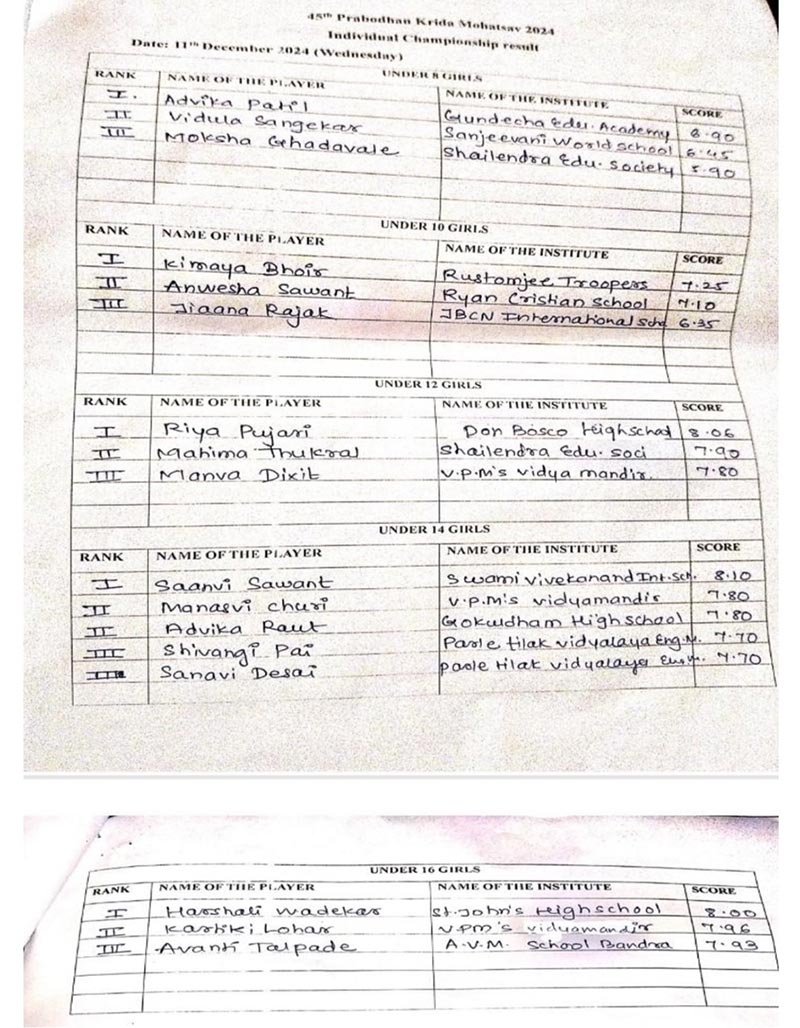 45th Prabodhan Krida Mohatsav 2024
Individual Championship result
Date: 11th December 2024 (Wednesday)
UNDER 8 GIRLS
RANK NAME OF THE PLAYER NAME OF THE INSTITUTE SCORE
I. Advika Patil Gundecha Edu. Academy 8.90
II Vidula Sangekar Sanjeevani World School 6.45
III Moksha Ghadavale Shailendra Edu. Society 5.90
UNDER 10 GIRLS
RANK NAME OF THE PLAYER NAME OF THE INSTITUTE SCORE
I Kimaya Bhoir Rustomjee Troopers 7.25
II Anwesha Sawant Ryan Cristian School 7.10
III Jiaana Rajak JBCN International Scho 6.35
UNDER 12 GIRLS
RANK NAME OF THE PLAYER NAME OF THE INSTITUTE SCORE
I Riya Pujari Don Bosco Highschool 8.06
II Mahima Thukral Shailendra Edu. Soci 7.90
III Manva Dixit V.P.M's Vidya mandir. 7.80
UNDER 14 GIRLS
RANK NAME OF THE PLAYER NAME OF THE INSTITUTE SCORE
I Saanvi Sawant Swami Vivekanand Int.Sch. 8.10
II Manasvi Churi V.P.M's Vidyamandir 7.80
II Advika Raut Gokuldham Highschool 7.80
III Shivangi Pai Parle Tilak Vidyalaya Eng.M. 7.70
III Sanavi Desai Parle Tilak Vidyalaya 7.70
UNDER 16 GIRLS
RANK NAME OF THE PLAYER NAME OF THE INSTITUTE SCORE
I Harshali Wadekar St.John's Highschool 8.00
II Kartiki Lohar V.P.M's Vidyamandir 7.96
III Avanti Talpade A.V.M. School Bandra 7.93